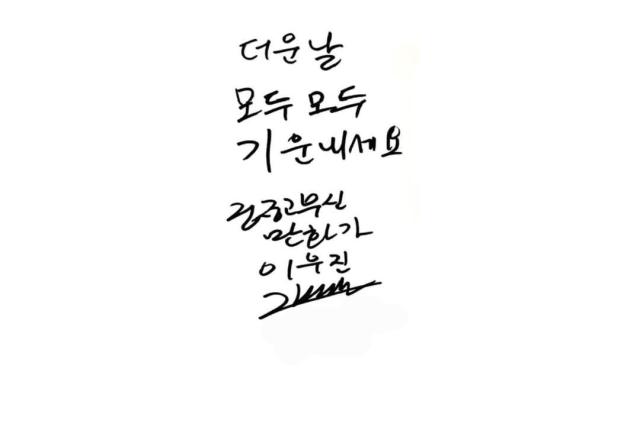 더운 날
모두 모두
기운내세요
검정고무신
만화가
이우진